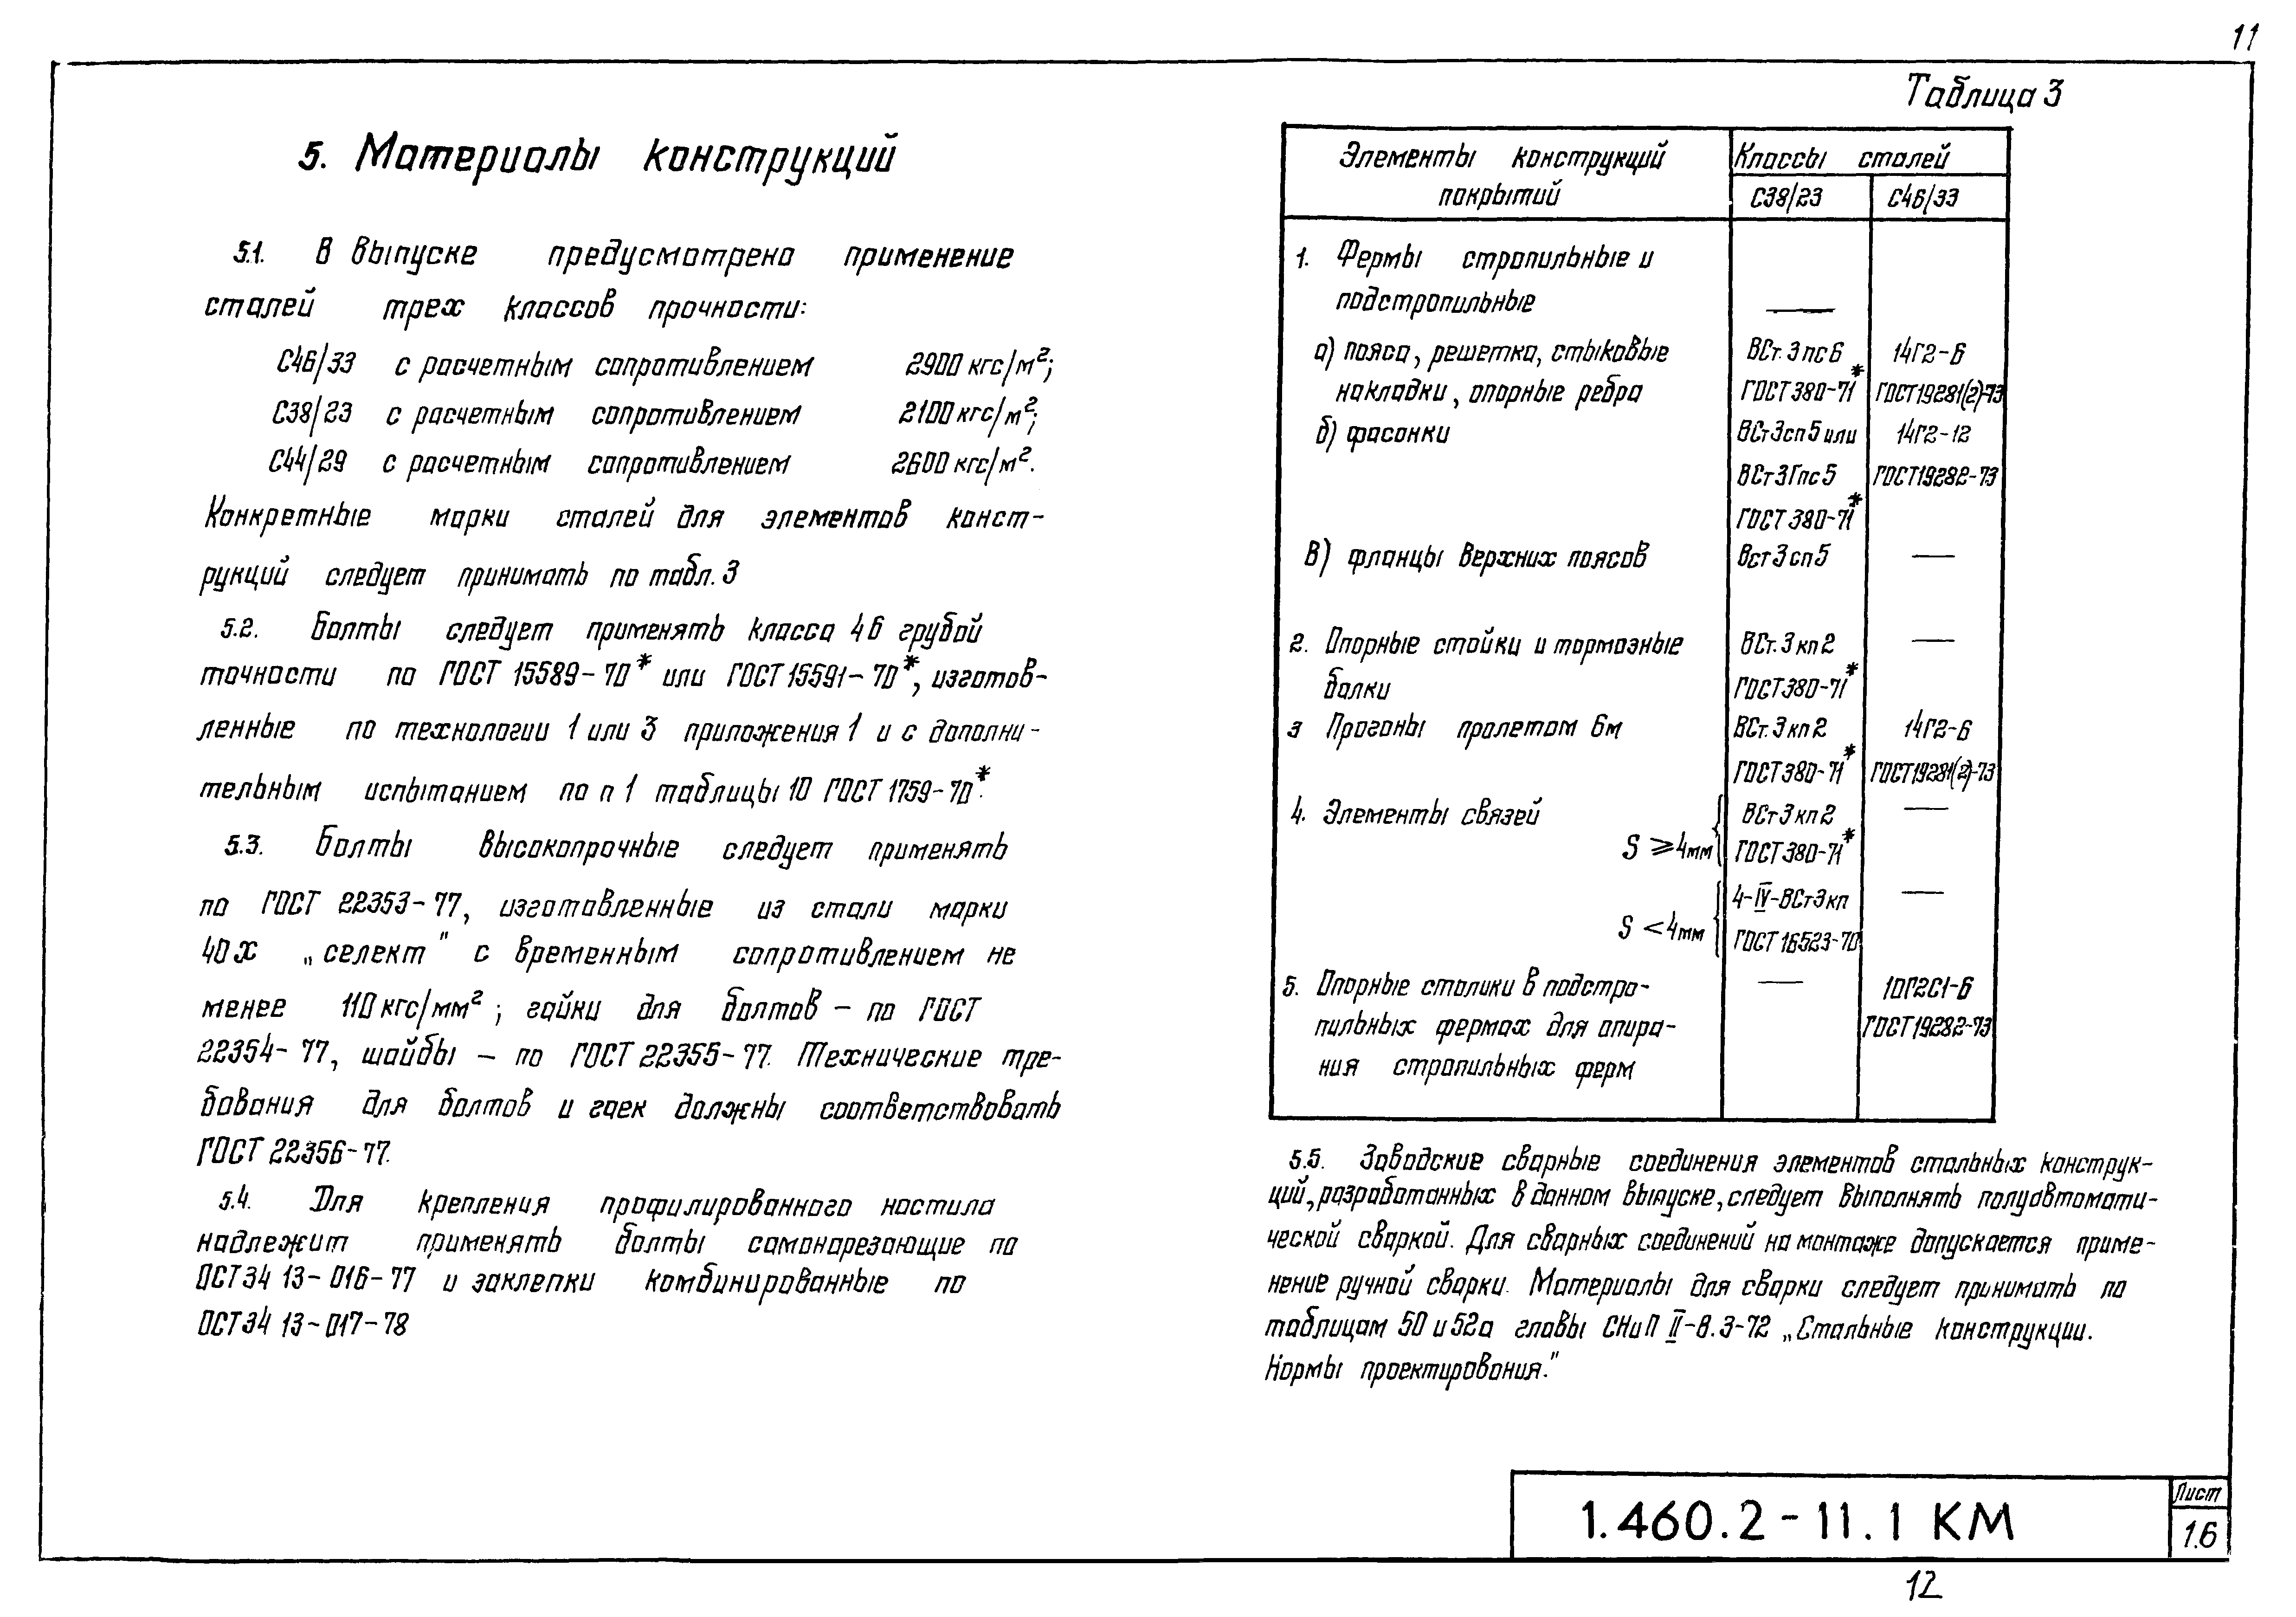 11
5. Материалы конструкций
5.1. В выпуске предусмотрено применение
сталей трех классов прочности:
С46/33 с расчетным сопротивлением 2900 кгс/м²;
С38/23 с расчетным сопротивлением 2100 кгс/м²;
С44/29 с расчетным сопротивлением 2600 кгс/м².
Конкретные марки сталей для элементов конст-
рукций следует принимать по табл. 3
5.2. Болты следует применять класса 46 грубой
точности по ГОСТ 15589-70* или ГОСТ 15591-70*, изготов-
ленные по технологии 1 или 3 приложения 1 и с дополни-
тельным испытанием по п 1 таблицы 10 ГОСТ 1759-70*.
5.3. Болты высокопрочные следует применять
по ГОСТ 22353-77, изготовленные из стали марки
40х „селект" с временным сопротивлением не
менее 110 кгс/мм²; гайки для болтов - по ГОСТ
22354-77, шайбы - по ГОСТ 22355-77. Технические тре-
бования для болтов и гаек должны соответствовать
ГОСТ 22356-77.
5.4. Для крепления профилированного настила
надлежит применять болты самонарезающие по
ОСТ 34 13-016-77 и заклепки комбинированные по
ОСТ 34 13-017-78
Таблица 3
Элементы конструкций Классы сталей
покрытий С38/23 С46/33
1. Фермы стропильные и
подстропильные —
а) пояса, решетка, стыковые ВСт.3пс6 14Г2-6
накладки, опорные ребра ГОСТ 380-71* ГОСТ19281(2)-73
б) фасонки ВСт3сп5 или 14Г2-12
ВСт3Гпс5 ГОСТ19282-73
ГОСТ 380-71*
в) фланцы верхних поясов Вст3сп5 —
2. Опорные стойки и тормозные ВСт.3кп2 —
балки ГОСТ380-71*
3 Прогоны пролетом 6м ВСт.3кп2 14Г2-6
ГОСТ380-71* ГОСТ19281(2)-73
4. Элементы связей ВСт3кп2 —
S ⩾ 4мм ГОСТ380-71*
4-IV-ВСт3кп —
S < 4мм ГОСТ 16523-70
5. Опорные столики в подстро- — 10Г2С1-6
пильных фермах для опира- ГОСТ19282-73
ния стропильных ферм
5.5. Заводские сварные соединения элементов стальных конструк-
ций, разработанных в данном выпуске, следует выполнять полуавтомати-
ческой сваркой. Для сварных соединений на монтаже допускается приме-
нение ручной сварки. Материалы для сварки следует принимать по
таблицам 50 и 52а главы СНиП II-В.3-72 „Стальные конструкции.
Нормы проектирования."
1.460.2-11.1 КМ
Лист
1.6
12